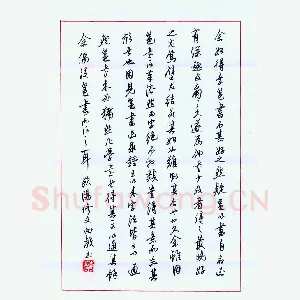 余始得李邕書不甚好之然疑邕以書自名必
有深趣及看之久遂為他書少及者得之最晚好
之尤篤譬猶結交其始也難則其合也必久余雖因
邕書得筆法然為字絕不相類豈得其意而忘其
形者也因見邕書追求鍾王以來字法皆可以通
然邕書未必獨然凡學書者得其一可以通其餘
余偶從邕書而得之耳 歐陽修文
Shufawang.CN